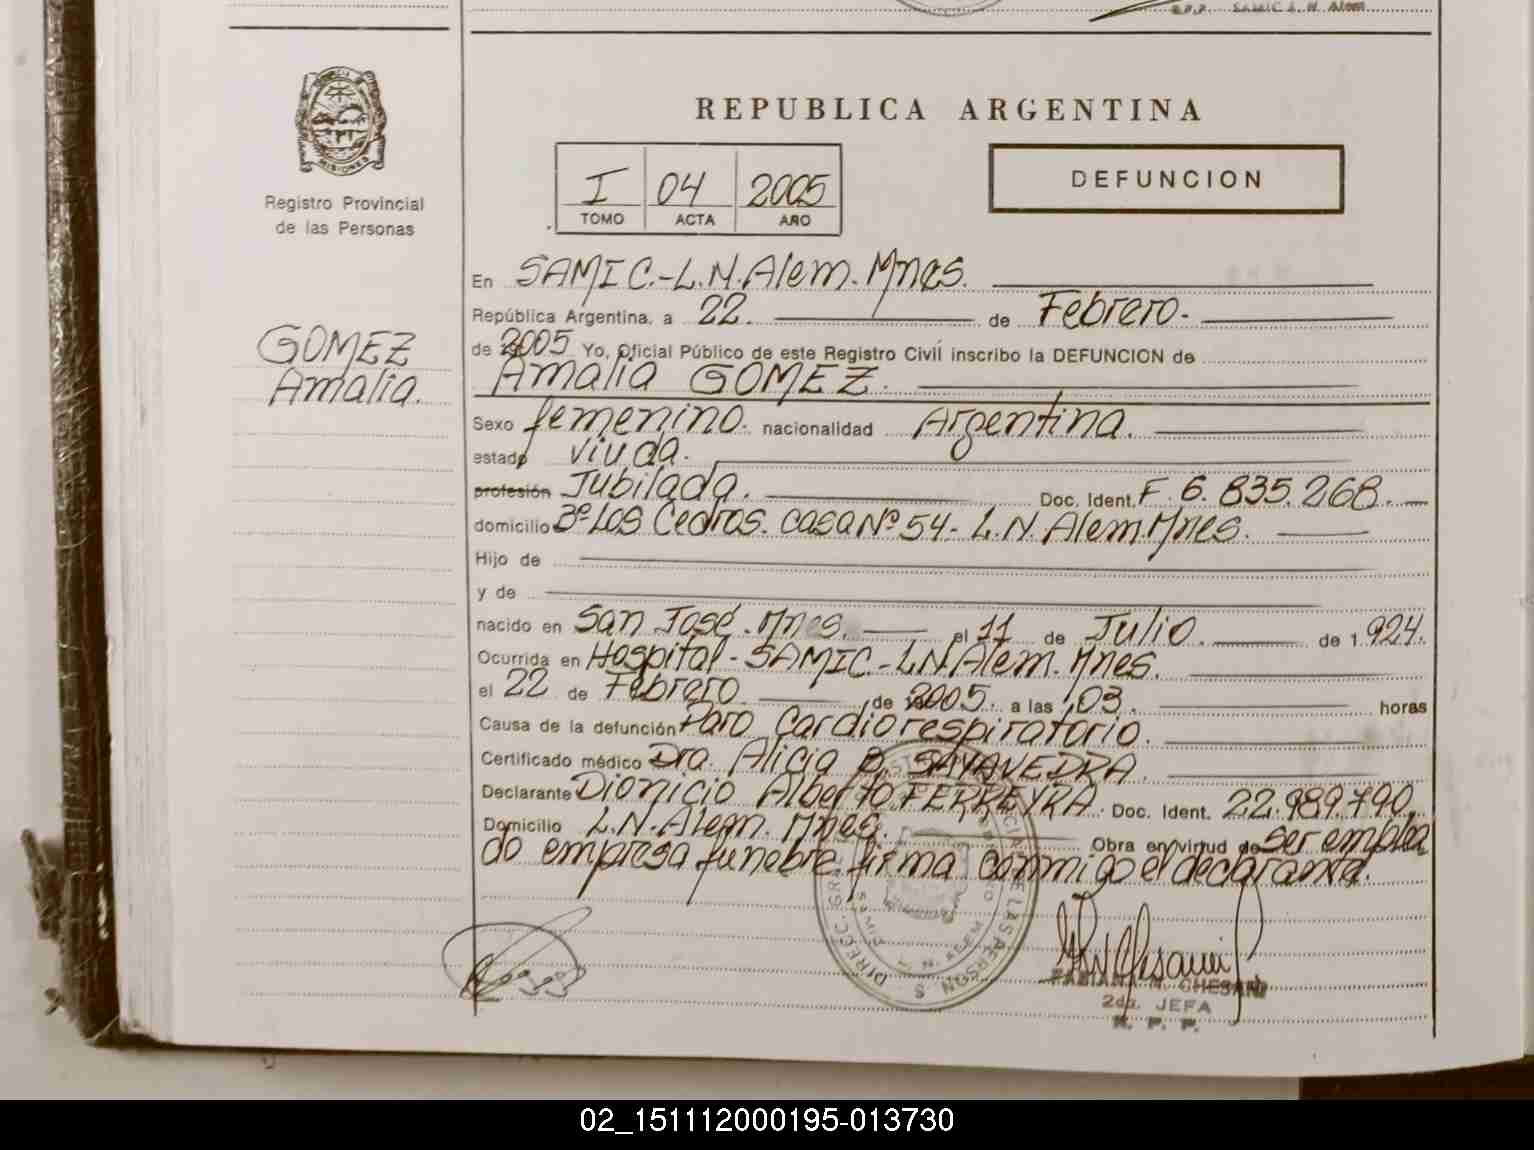 R.P.P. SAMIC L. N. Alem
MISIONES
Registro Provincial
de las Personas
GOMEZ
Amalia.
REPUBLICA ARGENTINA
I 04 2005
TOMO ACTA AÑO
DEFUNCION
En SAMIC.-L.N.Alem.Mnes.
República Argentina, a 22. de Febrero.
de 2005 Yo, Oficial Público de este Registro Civil inscribo la DEFUNCION de
Amalia GOMEZ.
Sexo femenino. nacionalidad Argentina.
estado viuda.
profesión Jubilada. Doc. Ident. F. 6.835.268.
domicilio Bº Los Cedros. casa Nº 54- L.N. Alem.Mnes.
Hijo de
y de
nacido en San José.Mnes. el 11 de Julio. de 1.924.
Ocurrida en Hospital-SAMIC.-L.N.Alem.Mnes.
el 22 de Febrero de 2005. a las 03. horas
Causa de la defunción Paro Cardiorespiratorio.
Certificado médico Dra. Alicia B. SAYAVEDRA.
Declarante Dionicio Alberto FERREYRA. Doc. Ident. 22.989.790
Domicilio L.N.Alem. Mnes. Obra en virtud de ser emplea
do empresa funebre firma conmigo el declarante.
DIRECC. GRAL. DE LAS PERSONAS
N. CHESANI
2da. JEFA
R. P. P.
02_151112000195-013730